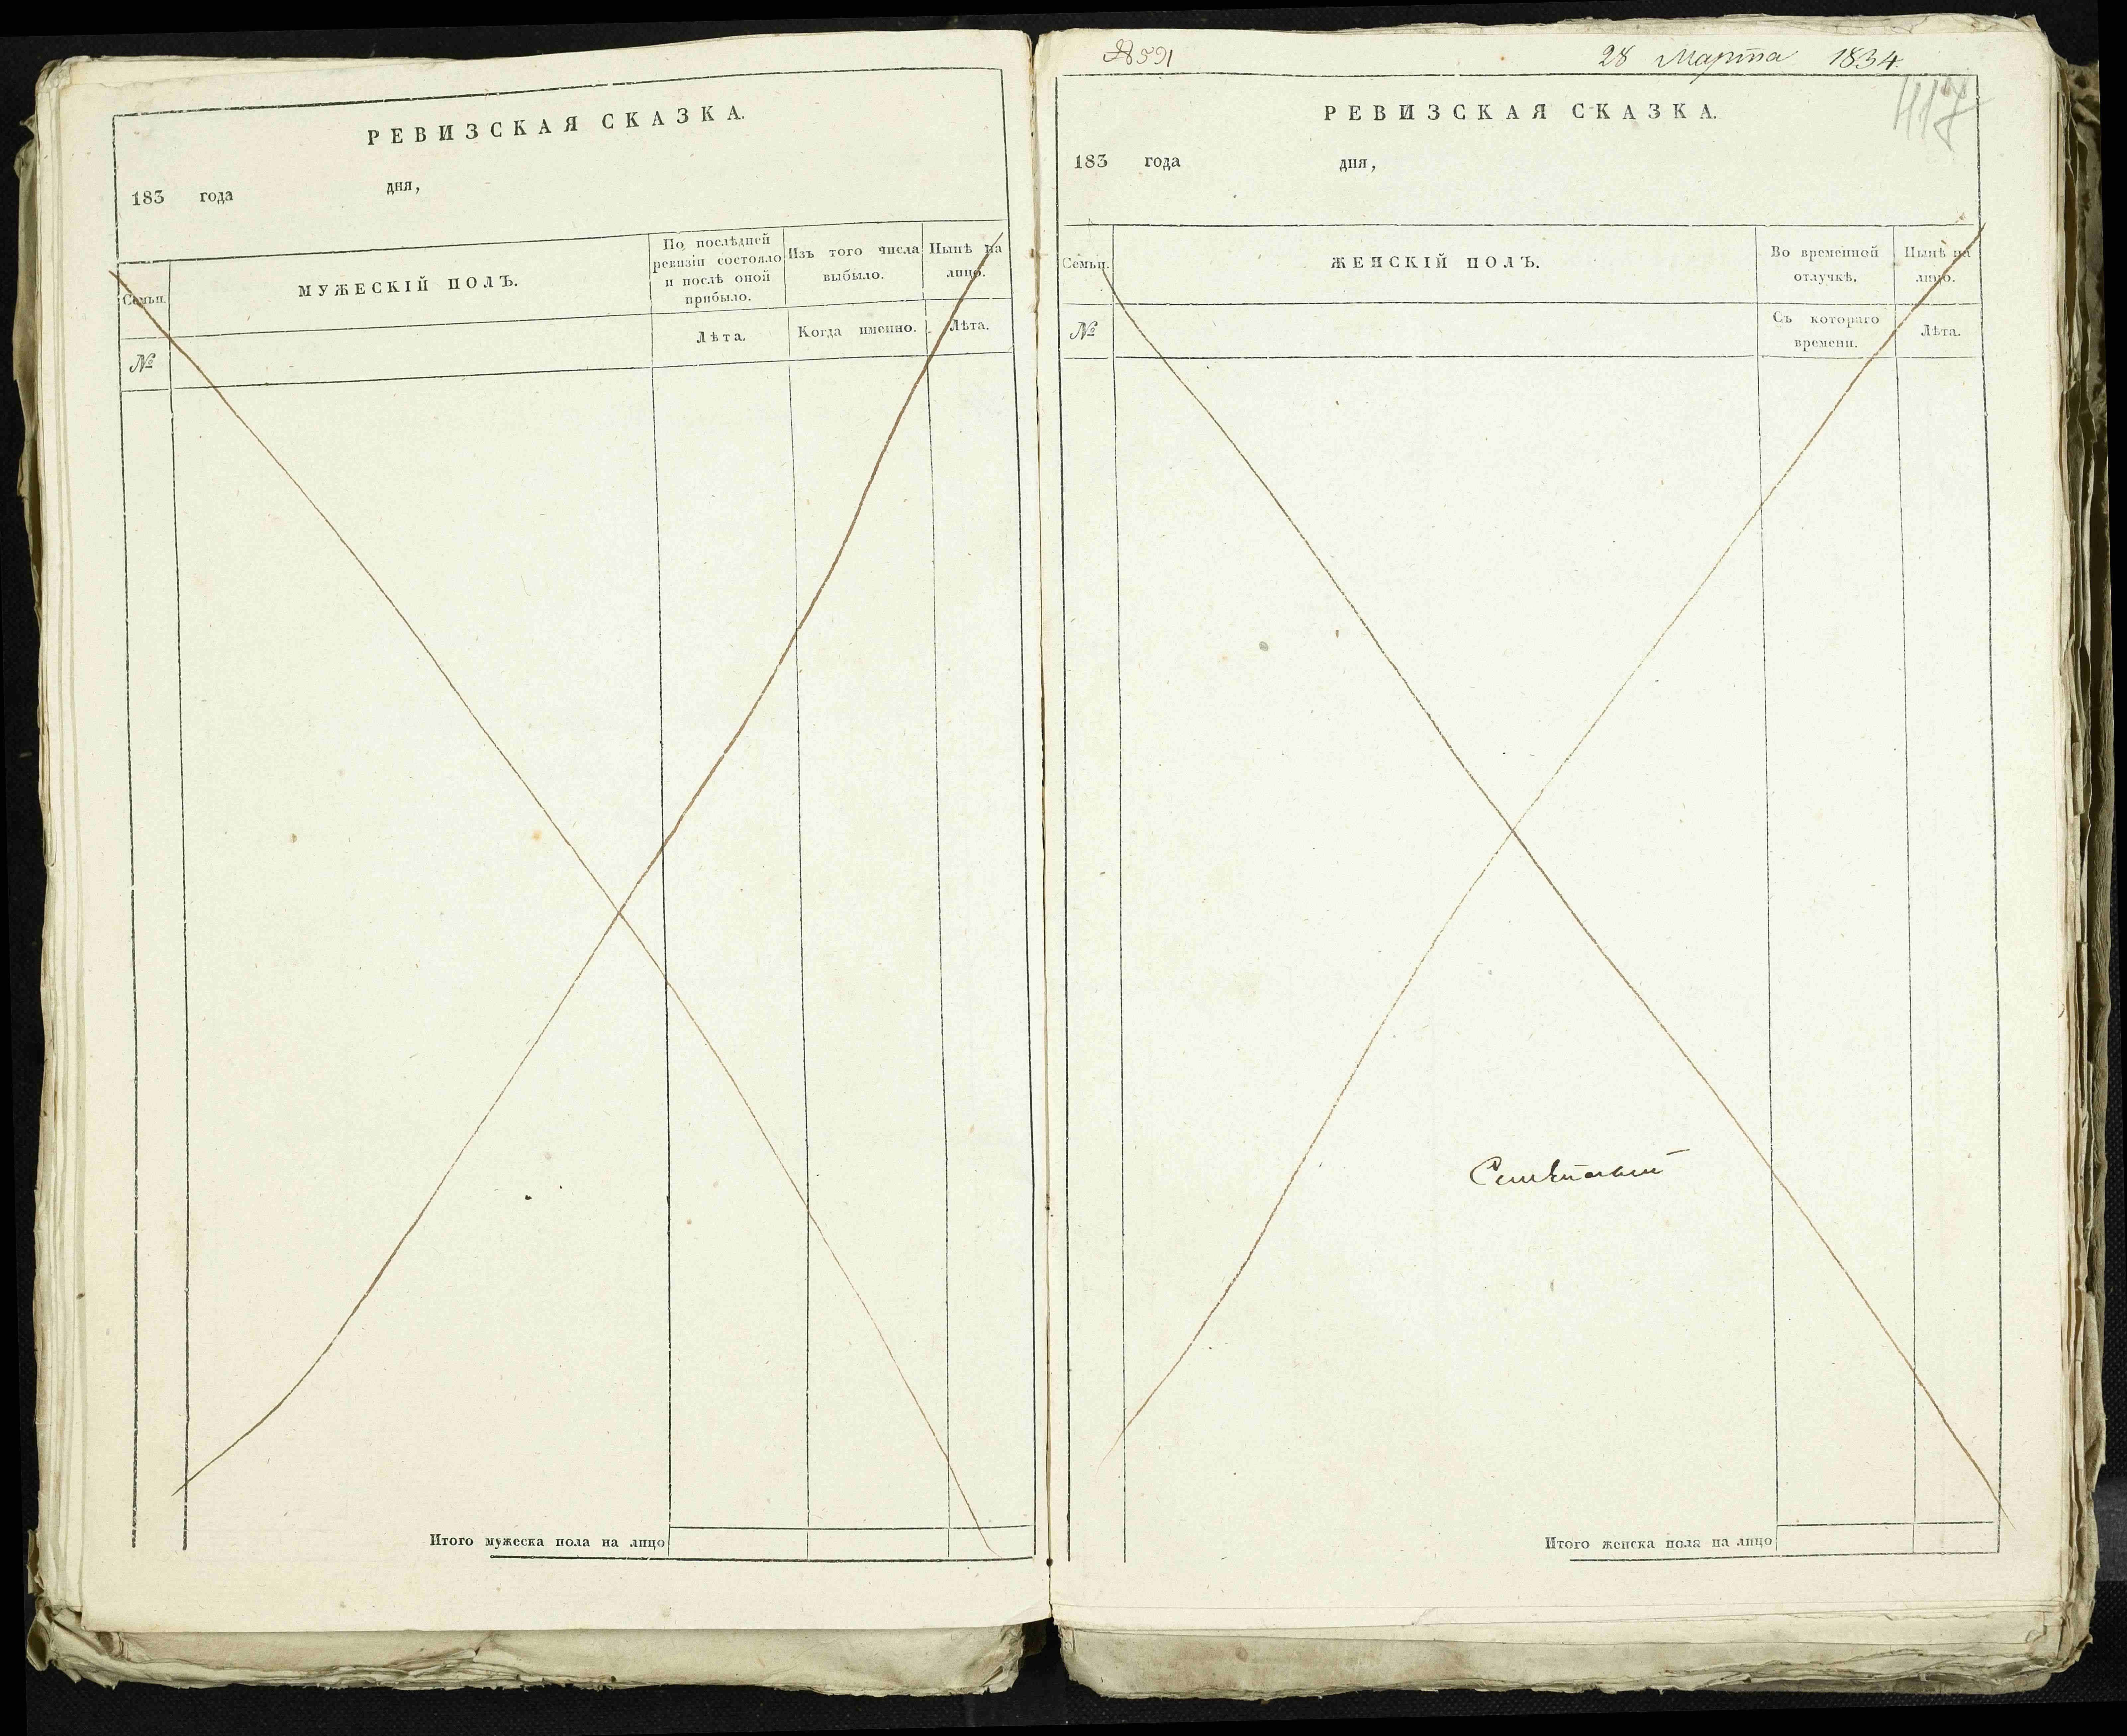 РЕВИЗСКАЯ СКАЗКА.
183 года дня,
Семьи.
МУЖЕСКІЙ ПОЛЪ.
По послѣдней
ревизіи состояло
и послѣ оной
прибыло.
Изъ того числа
выбыло.
Нынѣ на
лицо.
№
Лѣта.
Когда именно.
Лѣта.
Итого мужеска пола на лицо
28 Марта 1834
417
РЕВИЗСКАЯ СКАЗКА.
183 года дня,
Семьи.
ЖЕНСКІЙ ПОЛЪ.
Во временной
отлучкѣ.
Нынѣ на
лицо.
№
Съ котораго
времени.
Лѣта.
Итого женска пола на лицо